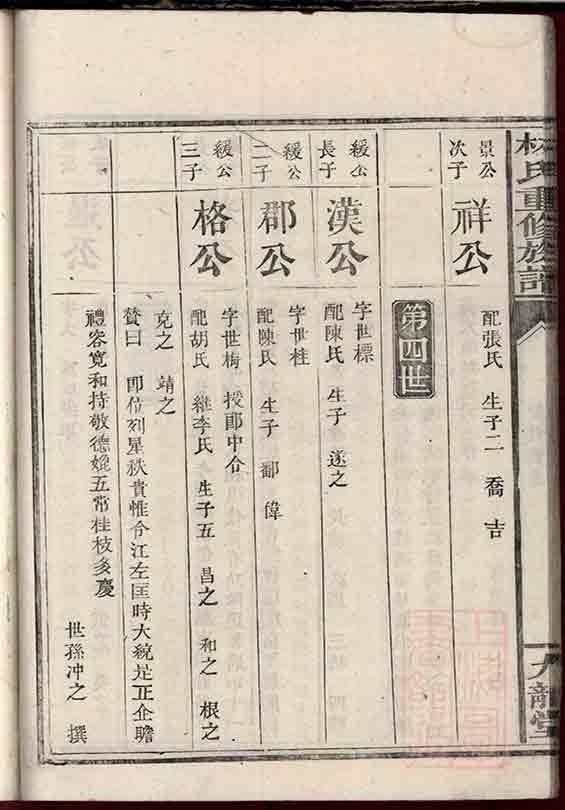 林氏重修族譜
九龍堂
景公次子
祥公
配張氏 生子二 喬 吉
第四世
緩公長子
漢公
字世標
配陳氏 生子 遂之
緩公二子
郡公
字世桂
配陳氏 生子 鄱 偉
緩公三子
格公
字世梅 授郎中令
配胡氏 繼李氏 生子五 昌之 和之 根之
克之 靖之
贊曰 即位列星秩貴惟令江左匡時大統是正企瞻
禮容寬和持敬德媲五常桂枝多慶
世孫冲之 撰